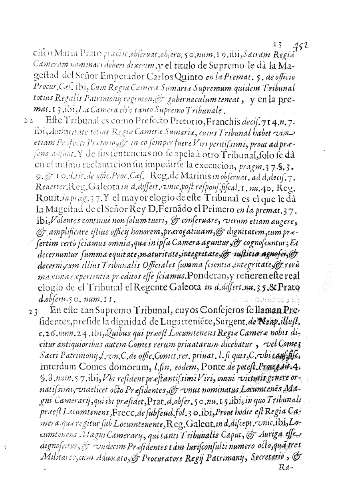 23 352
cisco Maria Prato pract. obseruat. obseru. 50. num. 19. ibi, Sacram Regiã
Cameram nominari debere dicerem, y el titulo de Supremo le dà la Ma-
gestad del Señor Emperador Carlos Quinto en la Premat. 5. de officio
Procur. Caes. ibi, Cum Regia Camera Sumariæ Supremum quidem Tribunal
totius Regalis Patrimonij regimen, & gubernaculum teneat, y en la pre-
mat. 13. ibi, La Camera essere tanto Supremo Tribunale.
22 Este Tribunal es como Prefecto Pretorio, Franchis decis. 714. n. 7.
ibi, Regiæ Cameræ Sumariæ, cuius Tribunal habet
etiam Præfecti Prætorio, & in eo semper fuere Viri peritissimi,
Y de sus sentencias no se apela a otro Tribunal, solo se dà
en el mismo reclamacion sin impedirse la execucion, pragm. 37. §. 3.
9. & 10. de offic. Proc. Caes. Reg. de Marinis in obseruat. ad d. decis. 7.
Reuerter, Reg. Galeota in d. differt. vnic. post respons. fiscal. 1. nu. 40. Reg.
Rouit. in prag. 37. Y el mayor elogio de este Tribunal es el que le dà
la Magestad de el Señor Rey D. Fernãdo el Primero en la premat. 37.
ibi, Volentes continuè non solum tueri, & conseruare, verum etiam augere,
& amplificare istius officij honorem, prærogatiuam, & dignitatem, cum præ-
sertim certò sciamus omnia, quæ in ipsa Camera aguntur, & cognoscuntur; Et
determinantur summa equitate, maturitate, integritate, & iustitia agnosci, &
decerni, cum illius Tribunalis Officiales summa scientia, integritate, & rerũ
maxima experientia præditos esse sciamus. Ponderan, y refieren este real
elogio de el Tribunal el Regente Galeota in d. differt. nu. 35. & Prato
d. obser. 50. num. 11.
23 En este tan Supremo Tribunal, cuyos Consejeros se llaman Pre-
sidentes, preside la dignidad de Lugarteniente, Surgent. de Neap. illust.
c. 26. num. 24. ibi, Quibus qui præest Locumtenens Regiæ Cameræ nobis di-
citur antiquioribus autem Comes rerum priuatarum dicebatur, vel Comes
Sacri Patrimonij, l. vn. C. de offic. Comit. rer. priuat. l. si quis C.
Interdum Comes domorum, l. fin. eodem. Ponte de potest. Proreg. tit. 4.
§. 8. num. 57. ibi, Vbi resident præstantissimi Viri, omni virtutis genere or-
natissimi, vtuntur octo Præsidentes, & vnus nominatus Locumtenens Ma-
gni Camerarij, qui ibi præsidet, Prat. d. obser. 50. nu. 15. ibi, in quo Tribunali
præest Locumtenens, Frecc. de subfeud. fol. 30. ibi, Prout hodie est Regia Ca-
mera quæ regitur sub Locumtenente, Reg. Galeot. in d. discept. vnic. ibi, Lo-
cumtenens Magni Camerarij, qui tanti Tribunalis Caput, & Auriga esse
agnoscitur, & vndecim Præsidentes tam Iurisconsulti numero octo, quã tres
Militares, cum Aduocato, & Procuratore Regij Patrimony, Secretario, &
Ra-